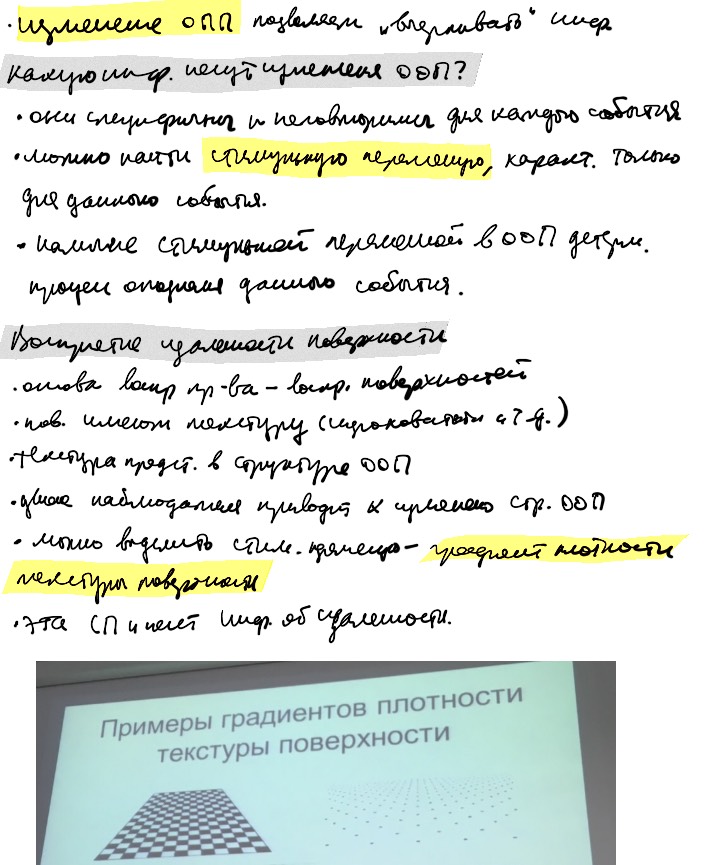 · изменение ОПП позволяет „вычерпывать“ инф
Какую инф. несут изменения ООП?
· они специфичны и неповторимы для каждого события
· можно найти стимульную переменную, характ. только
для данного события.
· наличие стимульной переменной в ООП детерм.
процес данного события.
Восприятие удалености поверхности
· основа воспр пр-ва – воспр. поверхностей
· пов. имеют текстуру (шероховатости и т.д.)
· текстура предст. в структуре ООП
· движ наблюдателя приводит к изменению стр. ООП
· можно выделить стим. перемену – градиент плотности
текстуры поверхности
· эта СП и несет инф. об удалености.
Примеры градиентов плотности
текстуры поверхности